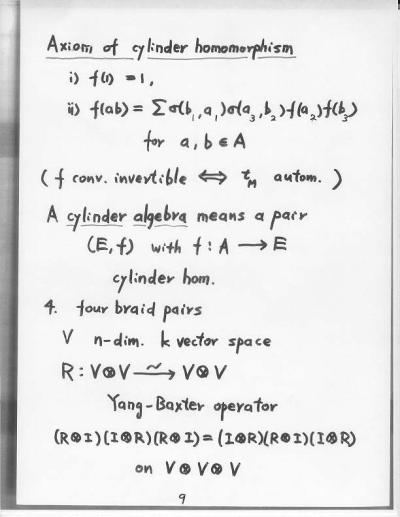 Axiom of cylinder homomorphism
i) f(1) = 1,
ii) f(ab) = Σ σ(b₁, a₁)σ(a₃, b₂)f(a₂)f(b₃)
for a, b ∈ A
( f conv. invertible ⟺ t_M autom. )
A cylinder algebra means a pair
(E, f) with f : A ⟶ E
cylinder hom.
4. four braid pairs
V n-dim. k vector space
R : V⊗V ⥲ V⊗V
Yang-Baxter operator
(R⊗I)(I⊗R)(R⊗I) = (I⊗R)(R⊗I)(I⊗R)
on V⊗V⊗V
9